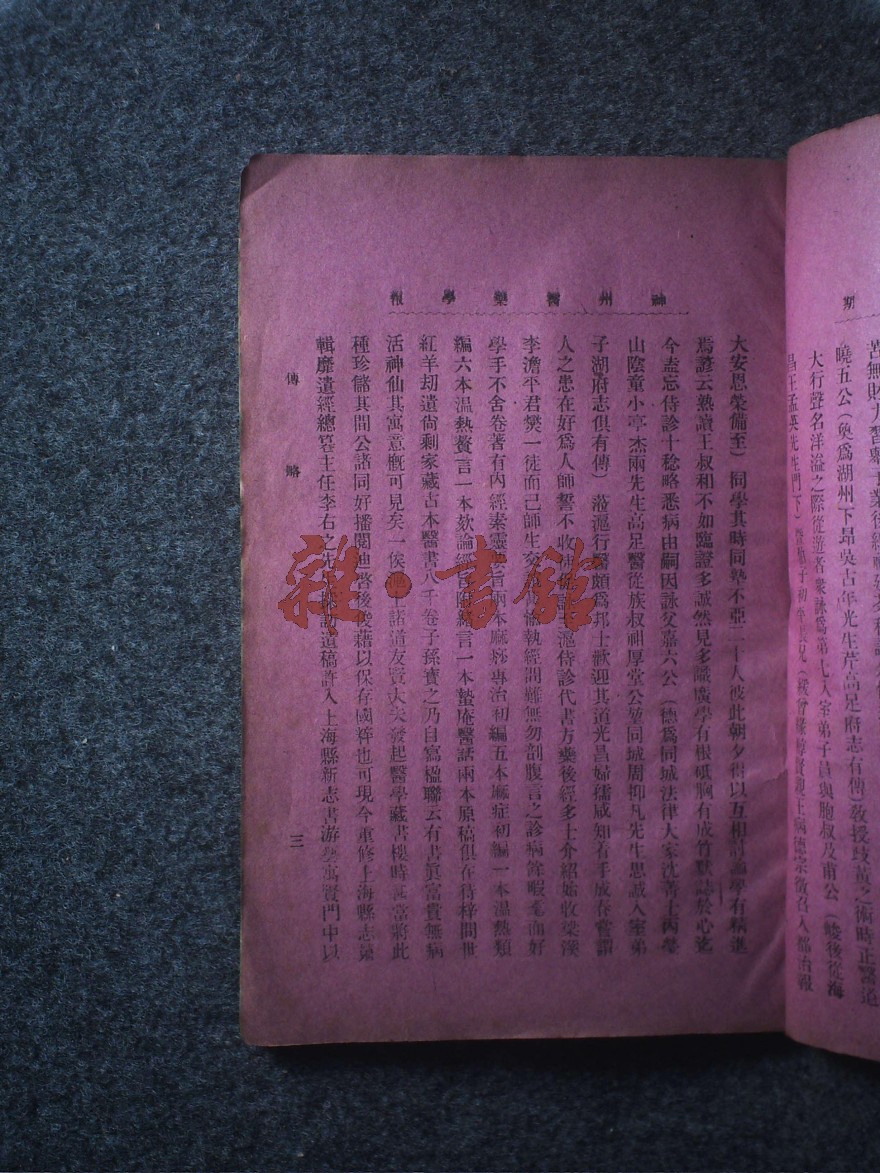 期
苦無
曉五公（奐爲湖州下昂吳古年先生芹高足府志有傳）敎授歧黃之術時正醫道
大行聲名洋溢之際從遊者衆詠爲第七人室弟子員與胞叔及甫公（峻後從海
昌王孟英先生門下）
神州醫藥學報
大安恩榮備至）同學其時同塾不亞二十人彼此朝夕得以互相討論學有精進
焉諺云熟讀王叔和不如臨證多誠然見多識廣學有根砥胸有成竹默誌於心迄
今盍忘侍診十稔略悉病由嗣因詠父嘉六公（德爲同城法律大家沈菁士丙瑩
山陰童小亭杰兩先生高足醫從族叔祖厚堂公堃同城周抑凡先生思誠入室弟
子湖府志俱有傳）蒞滬行醫頗爲邦士歡迎其道光昌婦孺咸知着手成春嘗謂
人之患在好爲人師誓不收 滬侍診代書方藥後經多士介紹始收梁溪
李澹平君爕一徒而已師生 執經問難無勿剖腹言之診病餘暇 面好
學手不舍卷著有內經素靈 兩本麻痧專治初編五本麻症初編一本温熱類
編六本温熱贅言一本欬論經 一本蟄庵醫話兩本原稿俱在待梓間世
紅羊刧遺尙剩家藏古本醫書八千卷子孫寶之乃自寫楹聯云有書眞富貴無病
活神仙其寓意槪可見矣一俟 諸道友賢大夫發起醫學藏書樓時 當將此
種珍儲其間公諸同好播閱迪啓後 藉以保存國粹也可現今重修上海縣志纂
輯靡遺經總纂主任李右之先 遺稿許入上海縣新志書游藝寓賢門中以
傳略
三
雜·書館